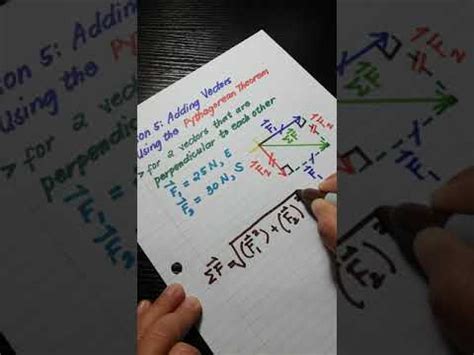 on 5: Adding Vectors
Using the Pythagorean Theorem
> for 2 vectors that are
perpendicular to each other
F₁ = 25 N, E
F₂ = 30 N, S
ΣF = √(F₁)² + (F₂)²
F₁
ΣF
F₂